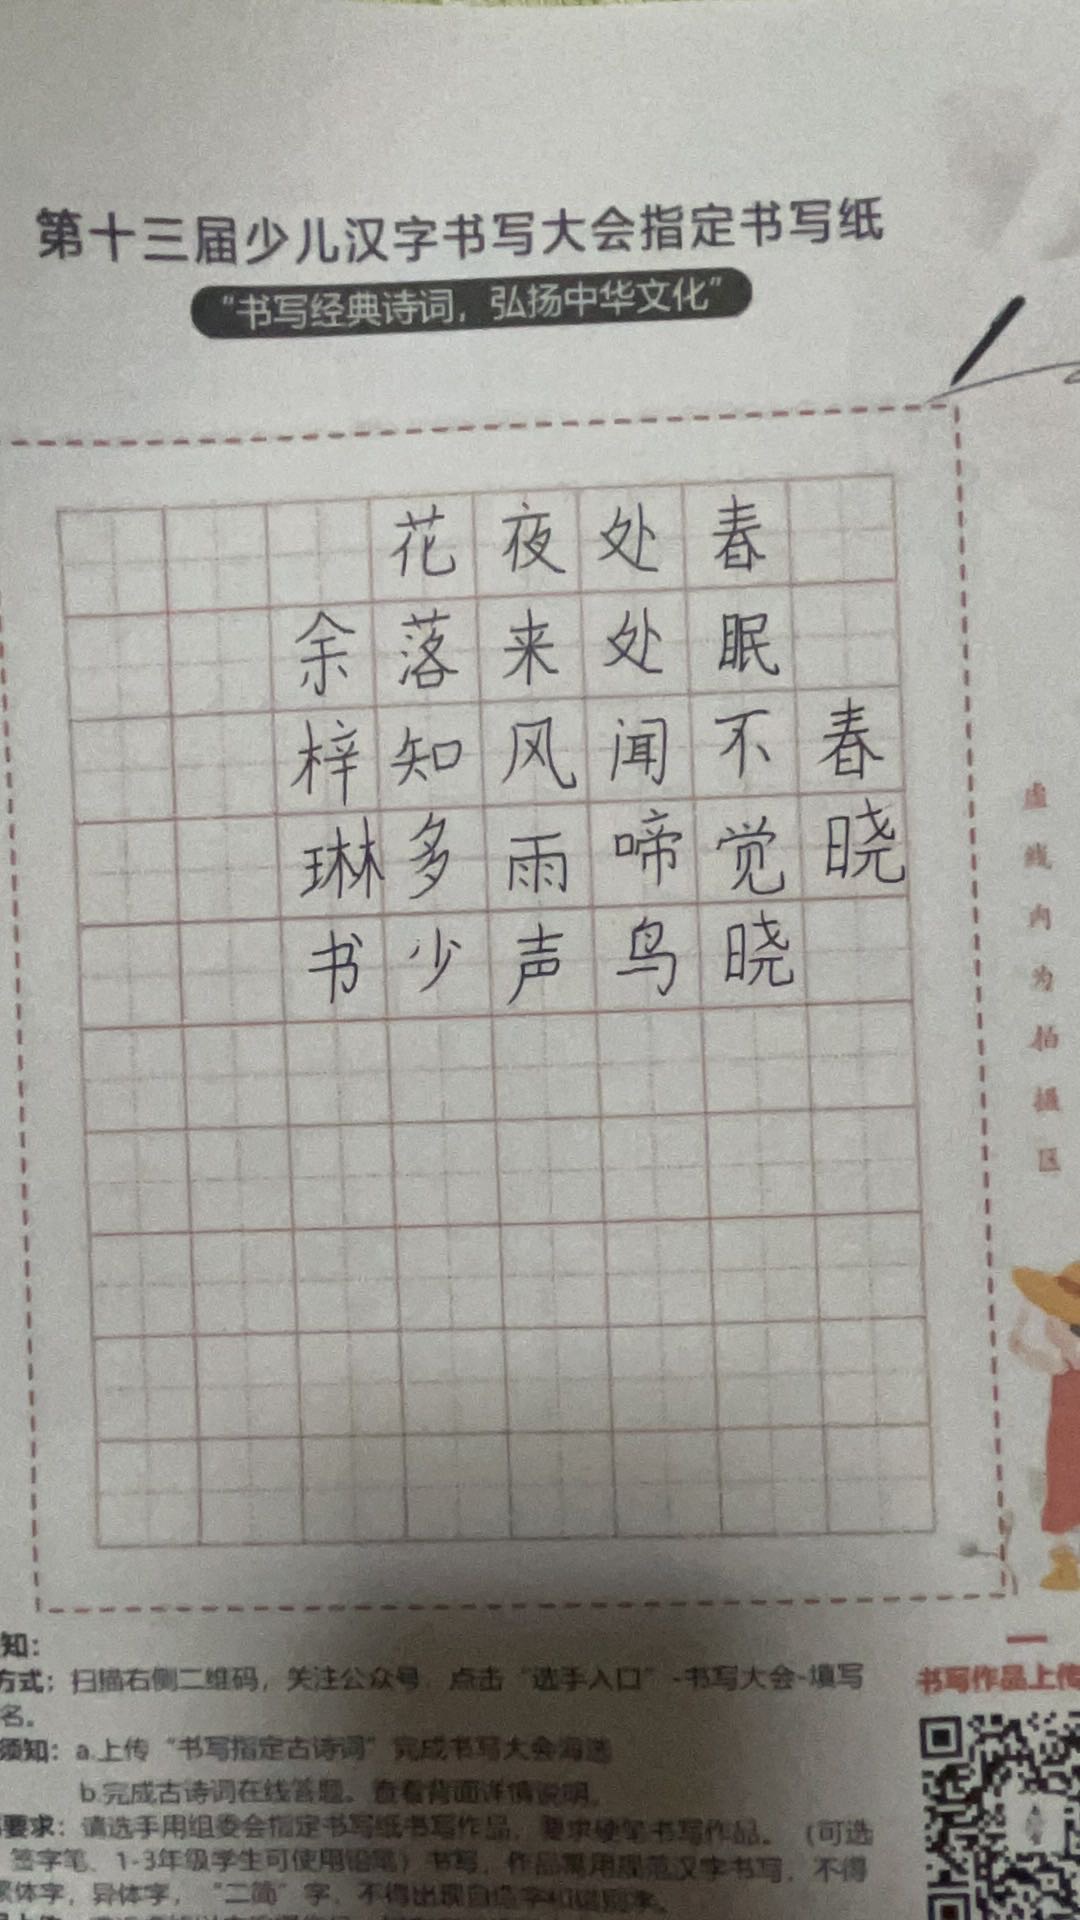 第十三届少儿汉字书写大会指定书写纸
“书写经典诗词，弘扬中华文化”
春晓
春眠不觉晓
处处闻啼鸟
夜来风雨声
花落知多少
余梓琳书
虚线内为拍摄区
知：
方式：扫描右侧二维码，关注公众号，点击“选手入口”-书写大会-填写
名。
须知：a.上传“书写指定古诗词”完成书写大会海选
b.完成古诗词在线答题。查看背面详情说明。
要求：请选手用组委会指定书写纸书写作品，要求硬笔书写作品。（可选
签字笔、1-3年级学生可使用铅笔）书写，作品需用规范汉字书写，不得
繁体字，异体字，“二简”字，不得出现自造字
书写作品上传